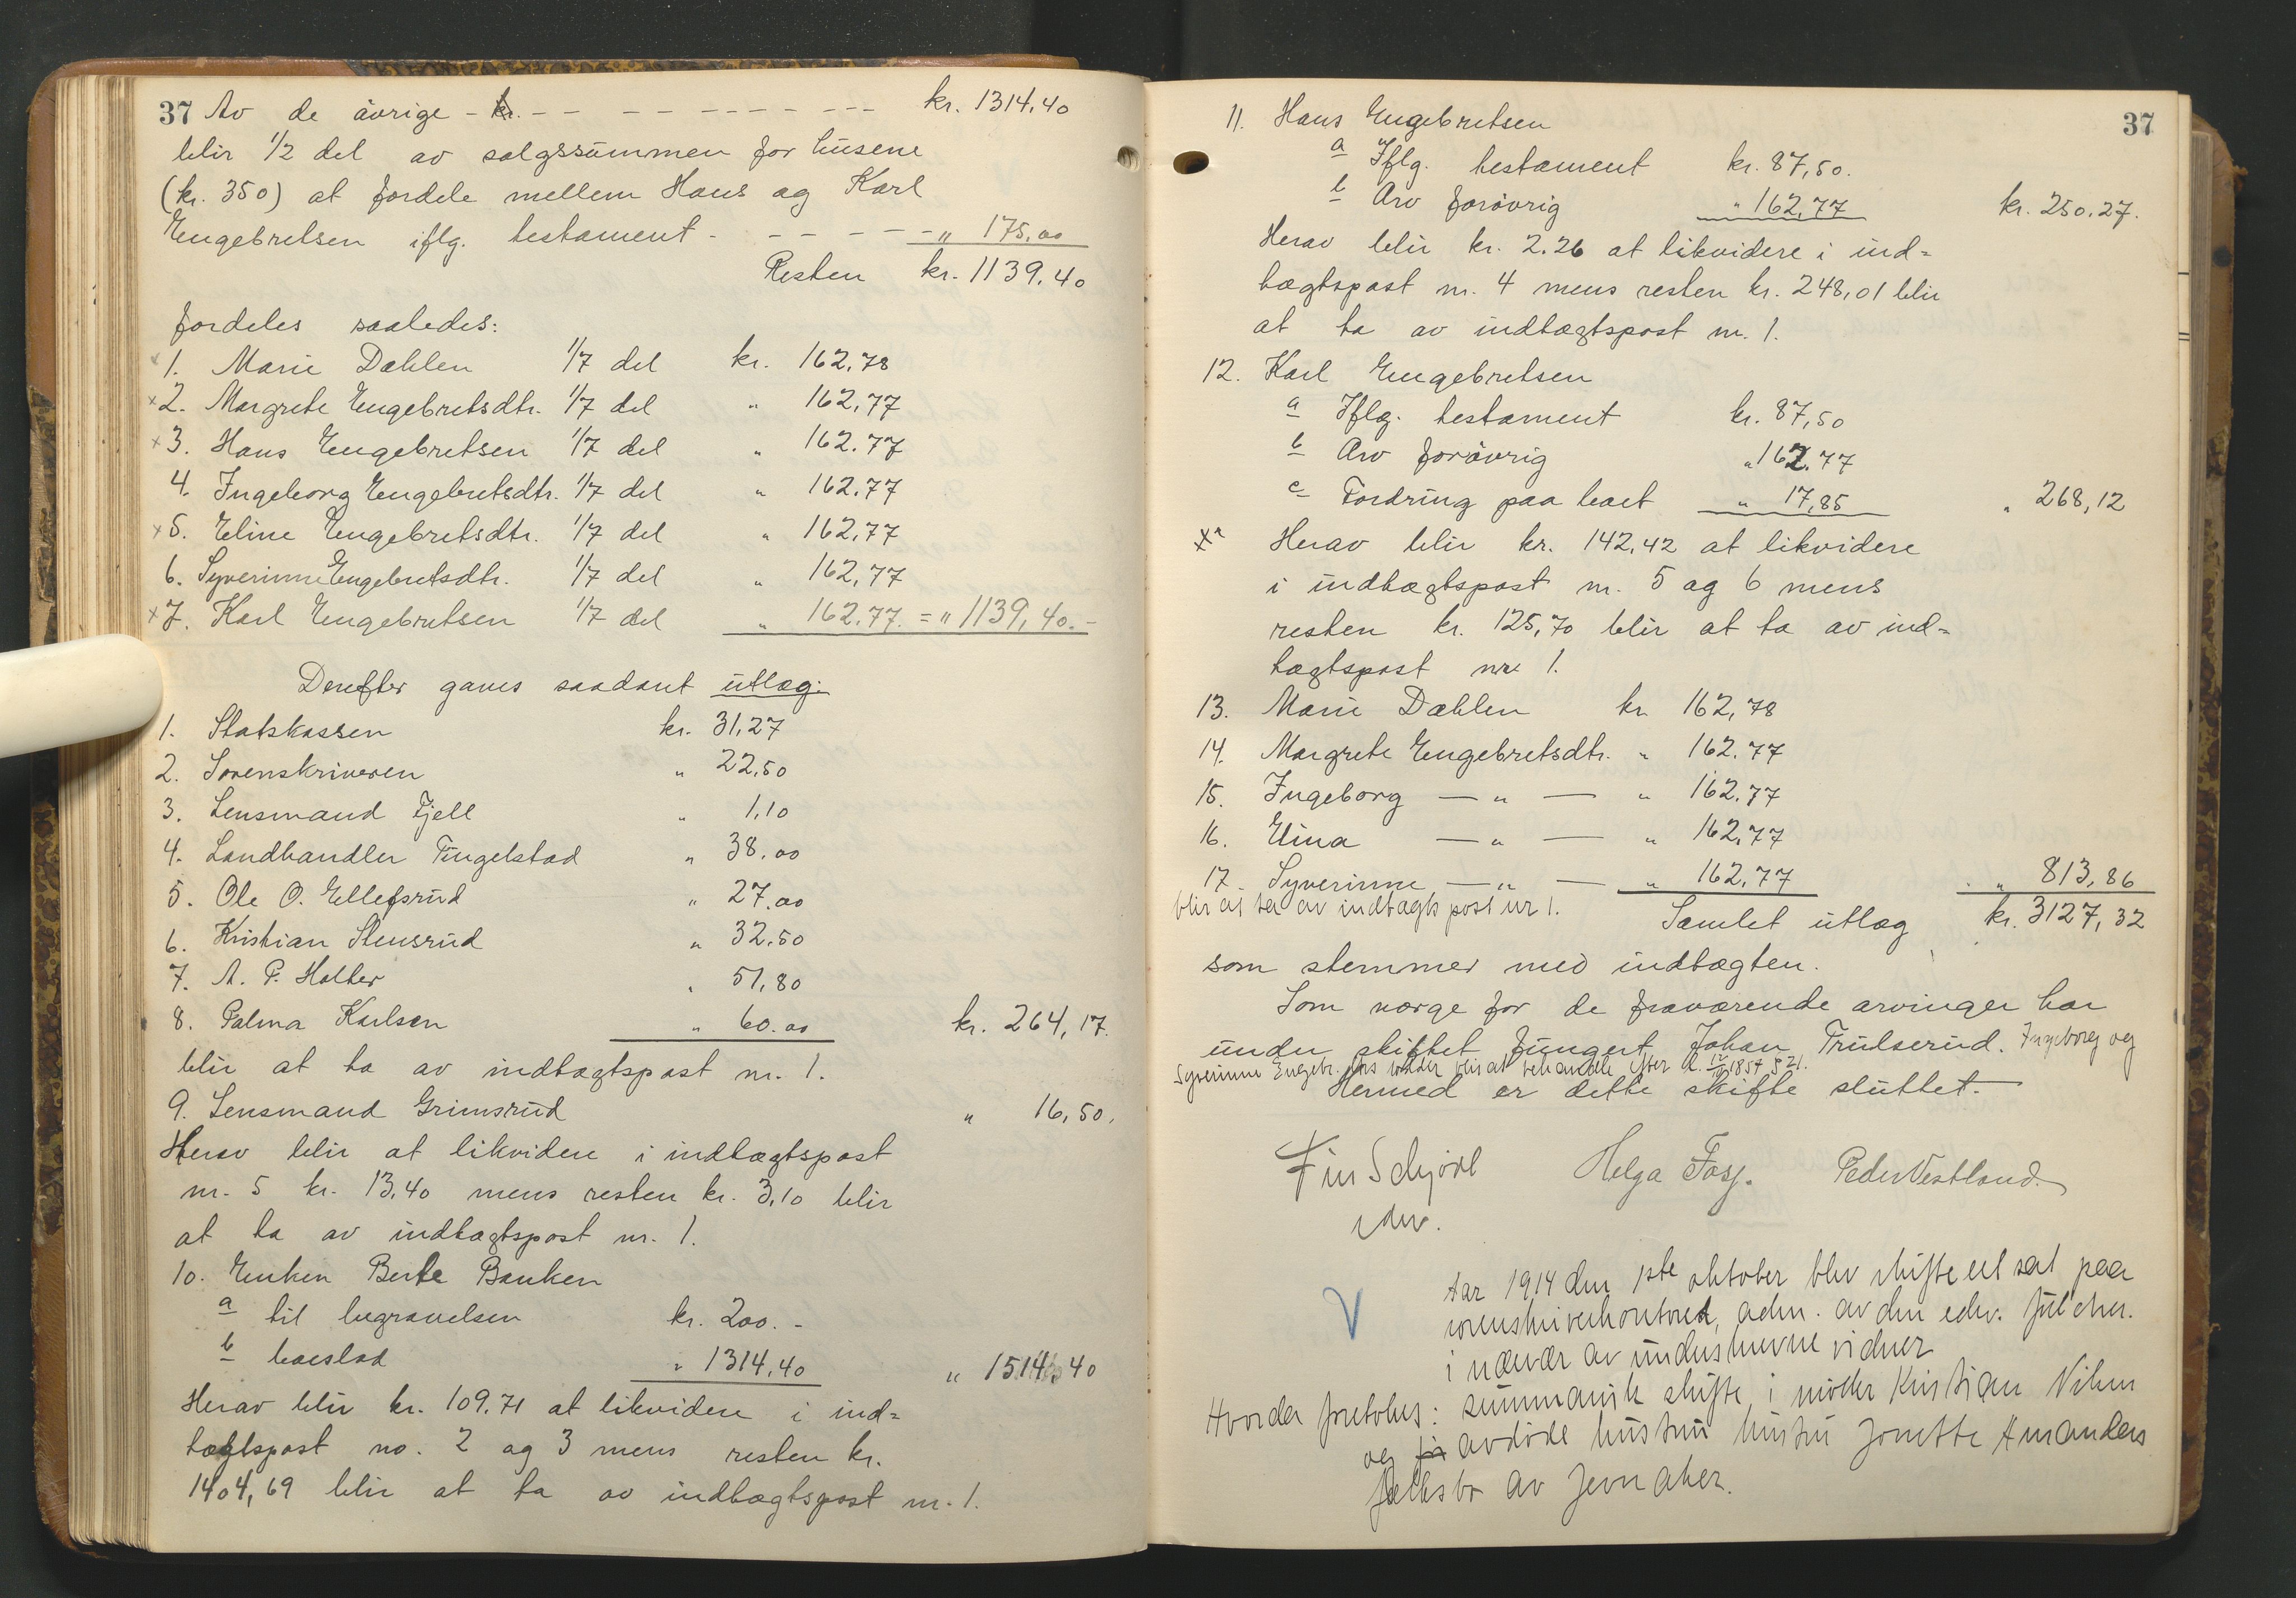 37 Av de övrige - kr. - - - - - - - - - kr. 1314,40
blir 1/2 del av salgssummen for husene
(kr. 350) at fordele mellem Hans og Karl
Engebretsen iflg. testament - - - - - - " 175,00
Resten kr. 1139,40
fordeles saaledes:
x 1. Marie Dæhlen 1/7 del kr. 162,78
x 2. Margrete Engebretsdtr. 1/7 del " 162,77
x 3. Hans Engebretsen 1/7 del " 162.77
4. Ingeborg Engebretsdtr. 1/7 del " 162,77
x 5. Eline Engebretsdtr. 1/7 del " 162,77
6. Syverinne Engebretsdtr. 1/7 del " 162,77
x 7. Karl Engebretsen 1/7 del " 162.77. = " 1139,40.-
Derefter gaves saadant utlæg:
1. Statskassen kr. 31,27
2. Sorenskriveren " 22,50
3. Lensmand Fjell " 1,10
4. Landhandler Tingelstad " 38.00
5. Ole O. Ellefsrud " 27.00
6. Kristian Stensrud " 32.50
7. A. P. Holter " 51,80
8. Palma Karlsen " 60.00 kr. 264,17.
blir at ta av indtægtspost nr. 1.
9. Lensmand Grimsrud " 16,50.
Herav blir at likvidere i indtægtspost
nr. 5 kr. 13,40 mens resten kr. 3,10 blir
at ta av indtægtspost nr. 1.
10. Enken Berte Banken
a til begravelsen kr. 200.-
b boeslod " 1314,40 " 1514,40
Herav blir kr. 109.71 at likvidere i ind=
tægtspost no. 2 og 3 mens resten kr.
1404,69 blir at ta av indtægtspost nr. 1.
37
11. Hans Engebretsen
a Iflg. testament kr. 87,50.
b Arv forövrig " 162,77 kr. 250.27.
Herav blir kr. 2.26 at likvidere i ind=
tægtspost nr. 4 mens resten kr. 248,01 blir
at ta av indtægtspost nr. 1.
12. Karl Engebretsen
a Iflg. testament kr. 87,50
b Arv forövrig " 162.77
c Fordring paa boet " 17,85 " 268,12
Herav blir kr. 142,42 at likvidere
i indtægtspost nr. 5 og 6 mens
resten kr. 125,70 blir at ta av ind=
tægtspost nr. 1.
13. Marie Dæhlen kr. 162,78
14. Margrete Engebretsdtr. " 162.77
15. Ingeborg — " — " 162.77
16. Elina — " — " 162,77
17. Syverinne — " — " 162,77 " 813,86
blir at ta av indtægts post nr 1.
Samlet utlæg kr. 3127,32
som stemmer med indtægten.
Som værge for de fraværende arvinger har
under skiftet fungert Johan Trulserud. Ingeborg og
Syverinne Engebr. dtrs lodder blir at behandle efter L. 12/10 1857 § 21.
Hermed er dette skifte sluttet.
Fin Schjöll Helga Fosj. Peder Vestland.
edsv.
V Aar 1914 den 1ste oktober blev skifteret sat paa
sorenskriverkontoret, adm. av den edsv. fuldm.
i nærvær av underskrevne vidner
Hvorda foretokes: summarisk skifte i møller Kristian Nilsen
og avdöde hustru hustru Jonette Amandas
fællesbo av Jevnaker.